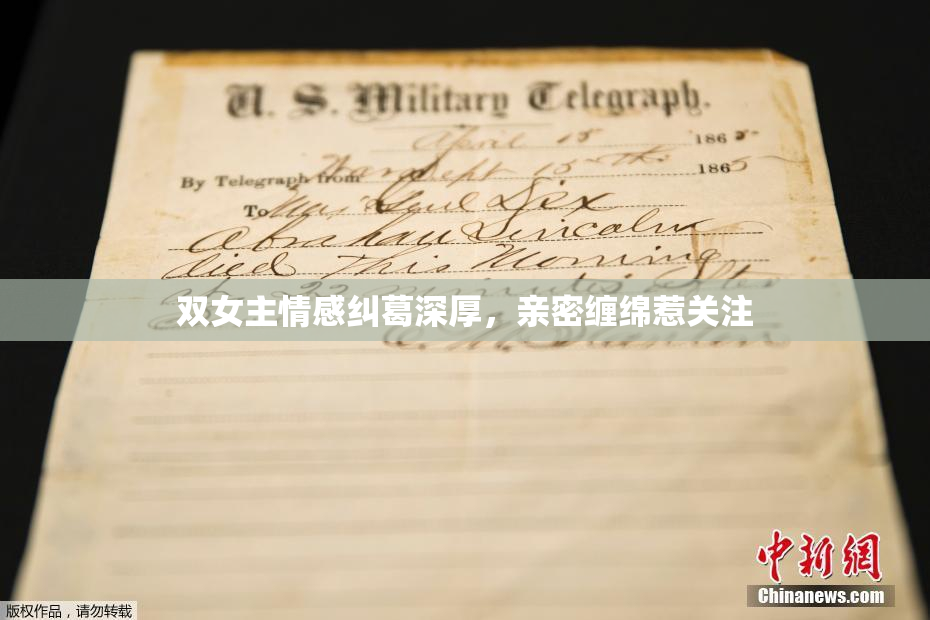 U. S. Military Telegraph.
April 15 1865
By Telegraph from War Dept 15th 1865
To Maj Genl Dix
Abraham Lincoln
died This Morning
at 22 minutes after
双女主情感纠葛深厚，亲密缠绵惹关注
E. M. Stanton
中新网
Chinanews.com
版权作品，请勿转载